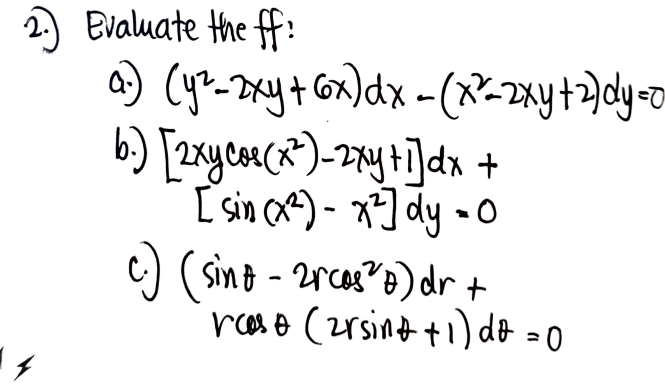 2.) Evaluate the ff:
a.) (y²-2xy+6x)dx-(x²-2xy+2)dy=0
b.) [2xycos(x²)-2xy+1]dx +
[sin(x²) - x²] dy = 0
c.) (sinθ - 2rcos²θ)dr +
rcosθ (2rsinθ+1)dθ = 0